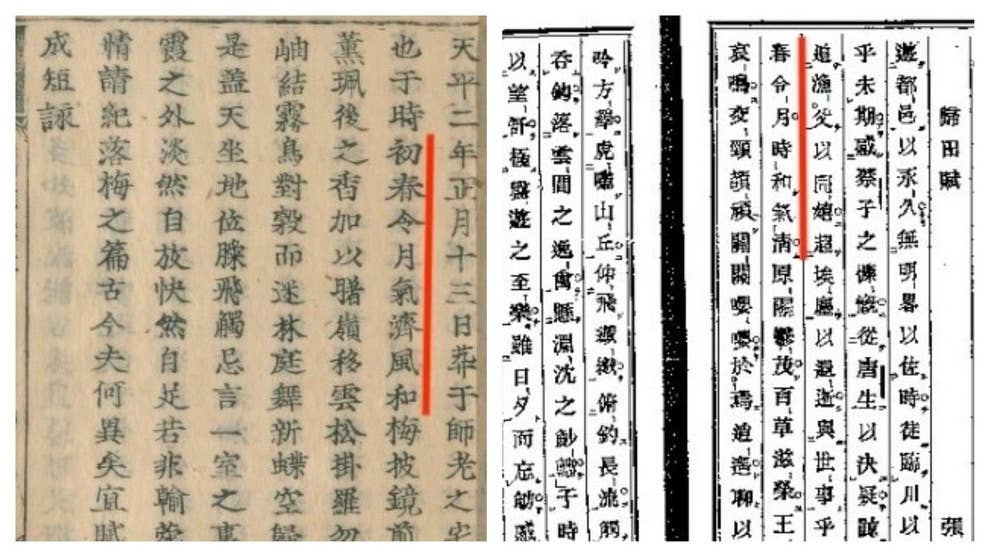 天平二年正月十三日萃于師老之宅
也于時初春令月氣淑風和梅披鏡前
薫珮後之香加以曙嶺移雲松掛羅
岫結霧鳥對縠而迷林庭舞新蝶空歸
是盖天坐地促膝飛觴忘言一室之裏
霞之外淡然自放快然自足若非翰苑
情請紀落梅之篇古今夫何異矣宜賦
成短詠
歸田賦 張
遊都邑以永久無明畧以佐時徒臨川以
乎未期感蔡子之慷慨從唐生以決疑諒
追漁父以同嬉超埃塵以遐逝與世事乎
春令月時和氣清原隰鬱茂百草滋榮王
哀鳴交頸頡頏關關嚶嚶於焉逍遙聊以
吟方澤虎嘯山丘仰飛纖繳俯釣長流觸
吞鉤落雲間之逸禽懸淵沈之魦鰡于時
以望舒極盤遊之至樂雖日夕而忘劬感